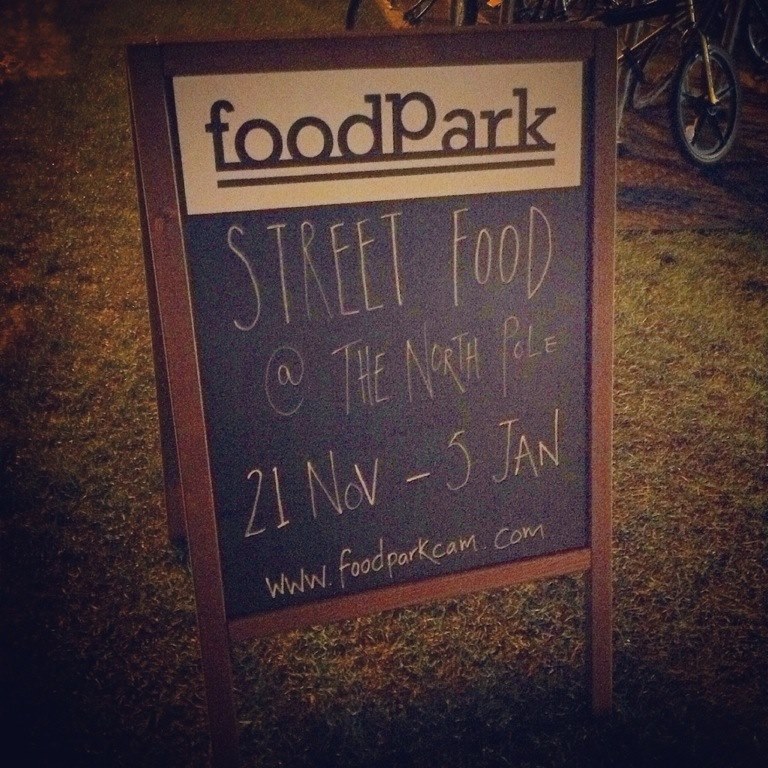 foodPark
STREET FOOD
@ THE NORTH POLE
21 NOV - 5 JAN
www.foodparkcam.com